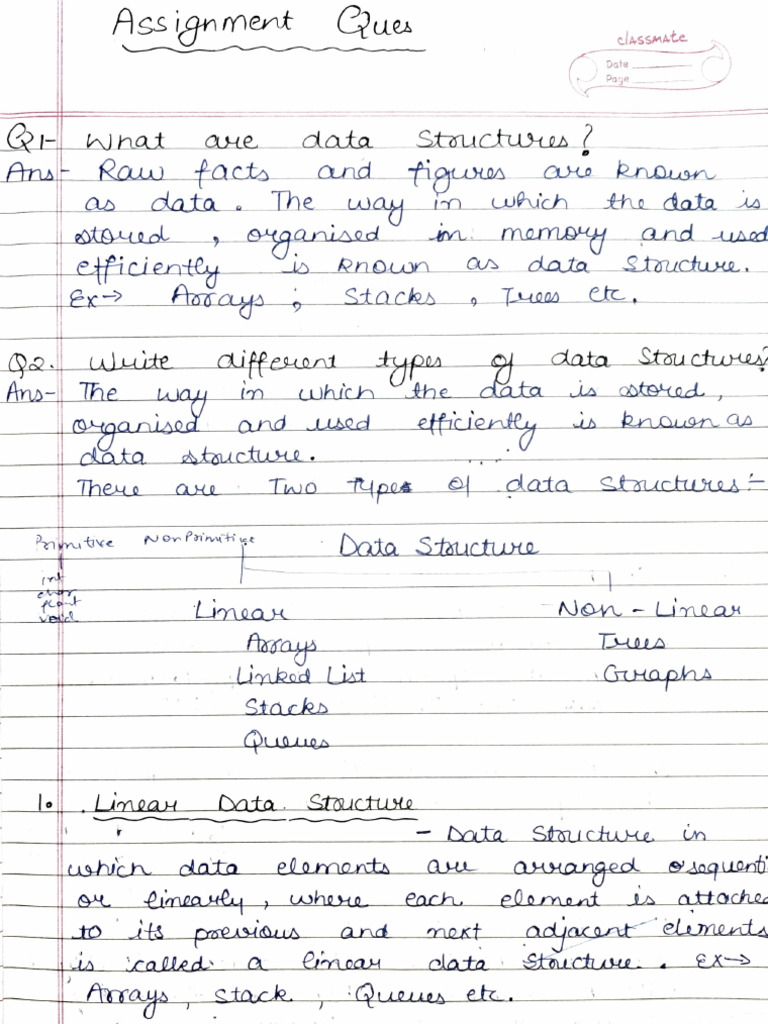 Assignment Ques
classmate
Date
Page
Q1- What are data Structures?
Ans- Raw facts and figures are known
as data. The way in which the data is
stored, organised in memory and used
efficiently is known as data structure.
Ex→ Arrays, Stacks, Trees etc.
Q2. Write different types of data Structures?
Ans- The way in which the data is stored,
organised and used efficiently is known as
data structure.
There are Two types of data structures:-
Primitive NonPrimitive Data Structure
int
char
float
void
Linear Non-Linear
Arrays Trees
Linked List Graphs
Stacks
Queues
1. Linear Data Structure
- Data Structure in
which data elements are arranged sequenti
or linearly, where each element is attached
to its previous and next adjacent elements
is called a linear data structure. Ex→
Arrays, stack, Queues etc.